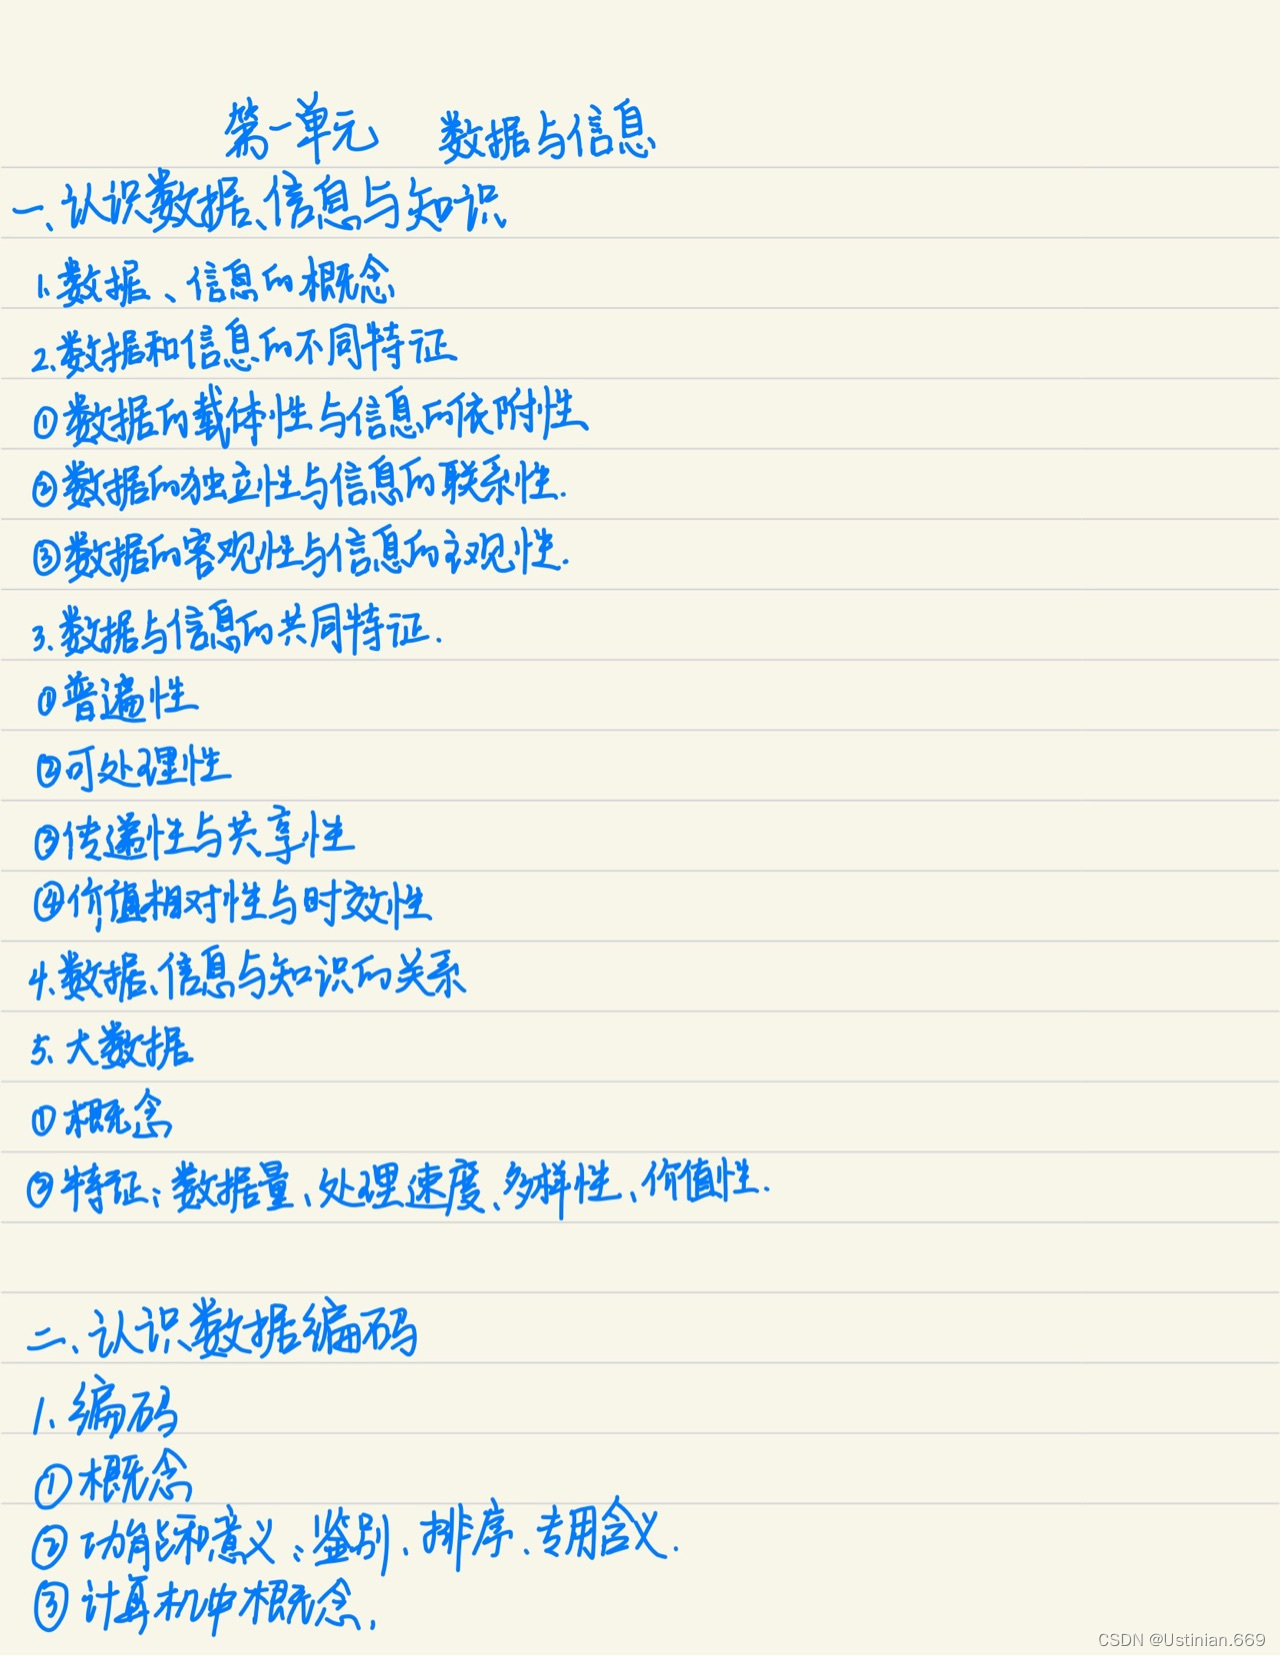 第一单元 数据与信息
一、认识数据、信息与知识
1.数据、信息的概念
2.数据和信息的不同特征
①数据的载体性与信息的依附性
②数据的独立性与信息的联系性.
③数据的客观性与信息的主观性.
3.数据与信息的共同特征.
①普遍性
②可处理性
③传递性与共享性
④价值相对性与时效性
4.数据、信息与知识的关系
5、大数据
①概念
②特征：数据量、处理速度、多样性、价值性.
二、认识数据编码
1、编码
①概念
②功能和意义：鉴别、排序、专用含义.
③计算机中概念.
CSDN @Ustinian.669